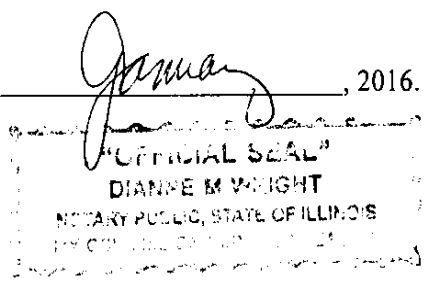 January, 2016.
"OFFICIAL SEAL"
DIANNE M WRIGHT
NOTARY PUBLIC, STATE OF ILLINOIS
MY